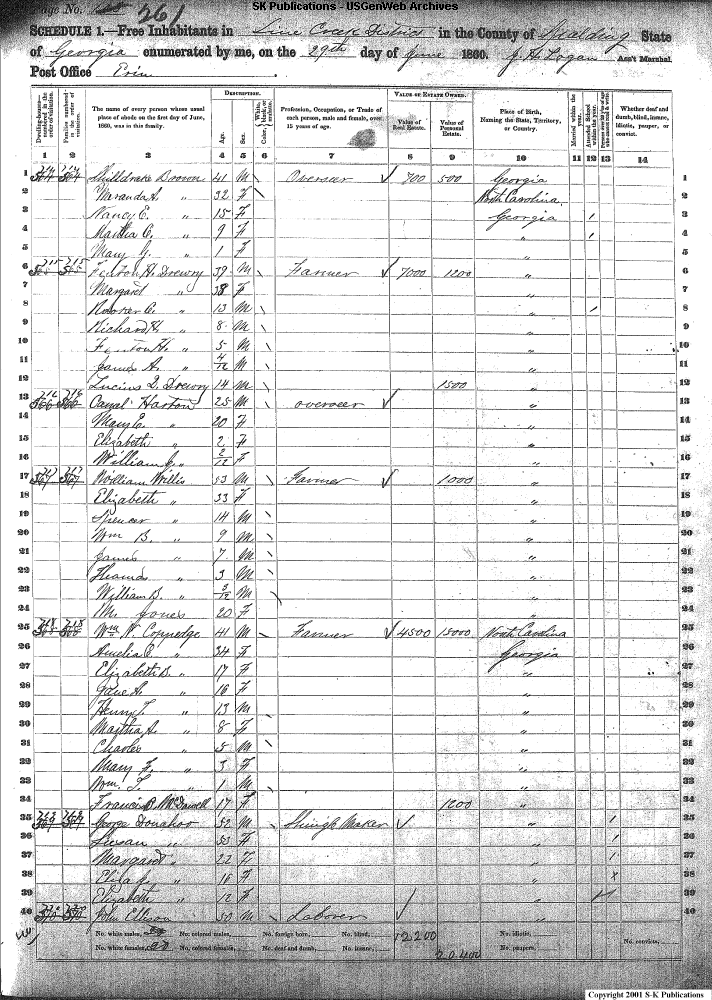 SK Publications - USGenWeb Archives
Page No. 261
SCHEDULE 1.—Free Inhabitants in Line Creek District in the County of Spalding State
of Georgia enumerated by me, on the 29th day of June 1860. J. H. Logan Ass't Marshal.
Post Office Erin
Dwelling-houses— numbered in the order of visitation.
Families numbered in the order of visitation.
The name of every person whose usual place of abode on the first day of June, 1860, was in this family.
DESCRIPTION.
Age.
Sex.
Color, White, black, or mulatto.
Profession, Occupation, or Trade of each person, male and female, over 15 years of age.
VALUE OF ESTATE OWNED.
Value of Real Estate.
Value of Personal Estate.
Place of Birth, Naming the State, Territory, or Country.
Married within the year.
Attended School within the year.
Whether deaf and dumb, blind, insane, idiotic, pauper, or convict.
1 2 3 4 5 6 7 8 9 10 11 12 13 14
1 Brown 41 M Overseer 700 500 Georgia 1
2 " 32 F North Carolina 2
3 Nancy E. " 15 F Georgia 3
4 Martha C. " 9 F " 4
5 Mary " 1 F " 5
6 715 Fenton H. Drewry 39 M Farmer 7000 1200 " 6
7 Margaret " 38 F " 7
8 " 13 M " 8
9 Richard H. " 8 M " 9
10 Fenton H. " 5 M " 10
11 James A. " 4/12 M " 11
12 Lucius Q. Drewry 14 M 1500 " 12
13 716 Harton 25 M overseer " 13
14 Mary E. " 20 F " 14
15 Elizabeth " 2 F " 15
16 William J. " 2/12 F " 16
17 717 William Willis 53 M Farmer 1000 " 17
18 Elizabeth " 33 F " 18
19 Spencer " 14 M " 19
20 Wm B. " 9 M " 20
21 James " 7 M " 21
22 Thomas " 3 M " 22
23 William B. " M " 23
24 Jones 20 F " 24
25 718 Wm W. Coppedge 41 M Farmer 4500 15000 North Carolina 25
26 Amelia E. " 34 F Georgia 26
27 Elizabeth " 17 F " 27
28 Jane A. " 16 F " 28
29 Henry T. " 13 M " 29
30 Martha A. " 8 F " 30
31 Charles " 5 M " 31
32 Mary F. " 3 F " 32
33 Wm. T. " 1 M " 33
34 Francis B. McDowell 17 F 1200 " 34
35 George Donahoo 52 M Shingle Maker " 35
36 Susan " 53 F " 36
37 Margaret " 22 F " 37
38 " 16 F " 38
39 Elizabeth " 12 F " 39
40 John Ellison 50 M Laborer " 40
No. white males, No. colored males, No. foreign born, No. blind, 12200 No. idiotic,
No. white females, 20 No. colored females, No. deaf and dumb, No. insane, 20400 No. paupers, No. convicts,
Copyright 2001 S-K Publications